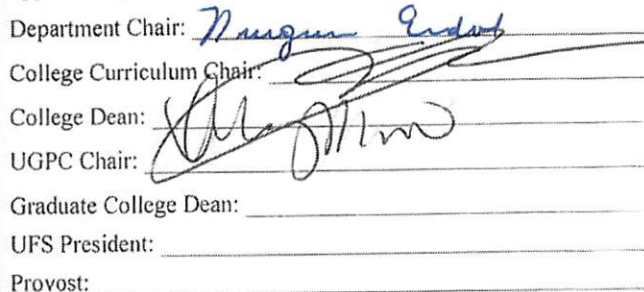 Department Chair:
College Curriculum Chair:
College Dean:
UGPC Chair:
Graduate College Dean:
UFS President:
Provost: